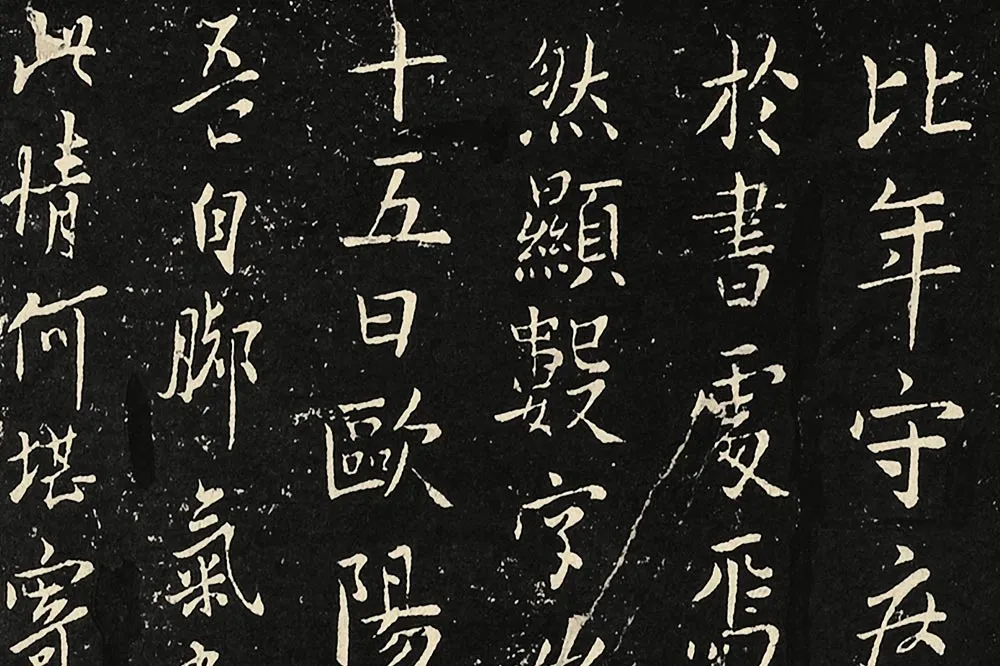 比年守疾
於書處焉
然顯數字
十五日歐陽
吾自脚氣
此情何堪寄